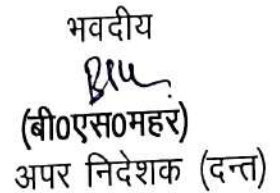 भवदीय
(बी0एस0महर)
अपर निदेशक (दन्त)